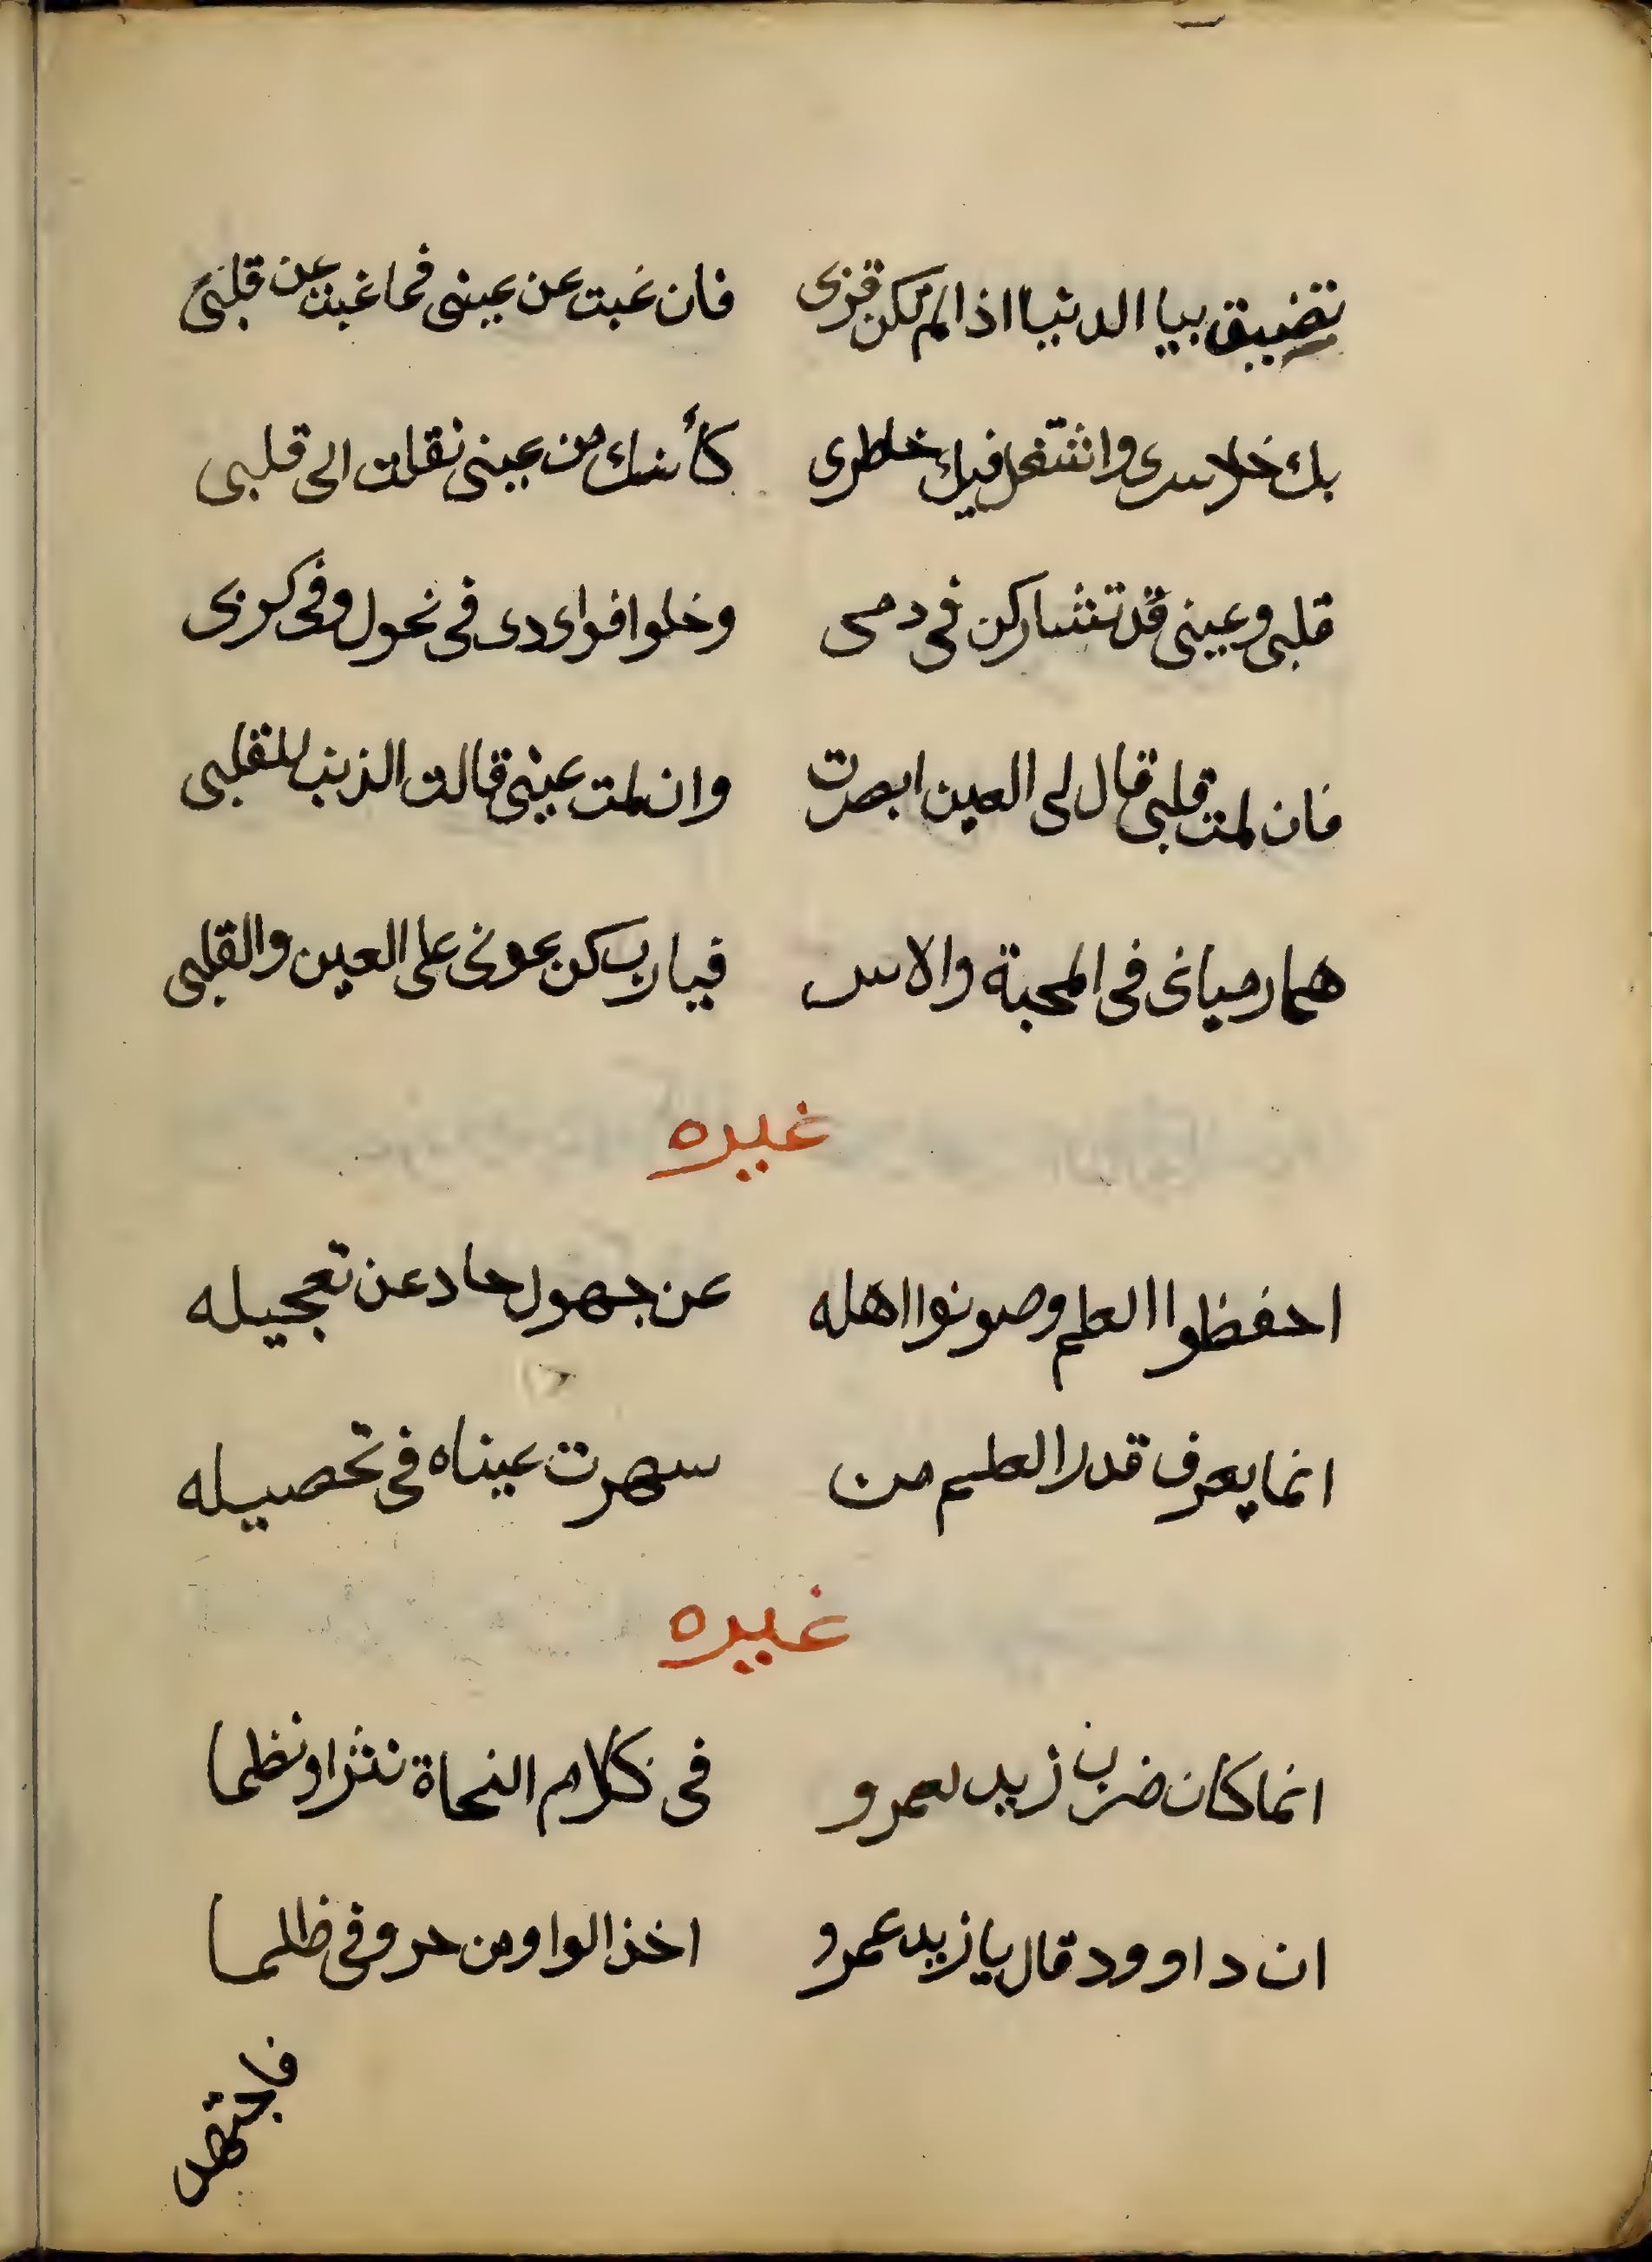 تضيق بيا الدنيا اذا لم تكن قربى فان غبت عن عينى فما غبت عن قلبى
بك خلا سرى واشتغل فيك خاطرى كأنك من عينى نقلت الى قلبى
قلبى وعينى قد تشاركن فى دمى وخلوا فوادى فى نحول وفى كربى
فان لمت قلبى قال لى العين ابصرت وان لمت عينى قالت الذنب للقلبى
هما رميانى فى المحبة والاسى فيا رب كن عونى على العين والقلبى
غيره
احفظوا العلم وصونوا اهله عن جهول حاد عن تعجيله
انما يعرف قدر العلم من سهرت عيناه فى تحصيله
غيره
انما كان ضرب زيد لعمرو فى كلام النحاة نثرا ونظما
ان داوود قال يا زيد عمرو اخذ الواو من حروفى ظلما
فاجتهد